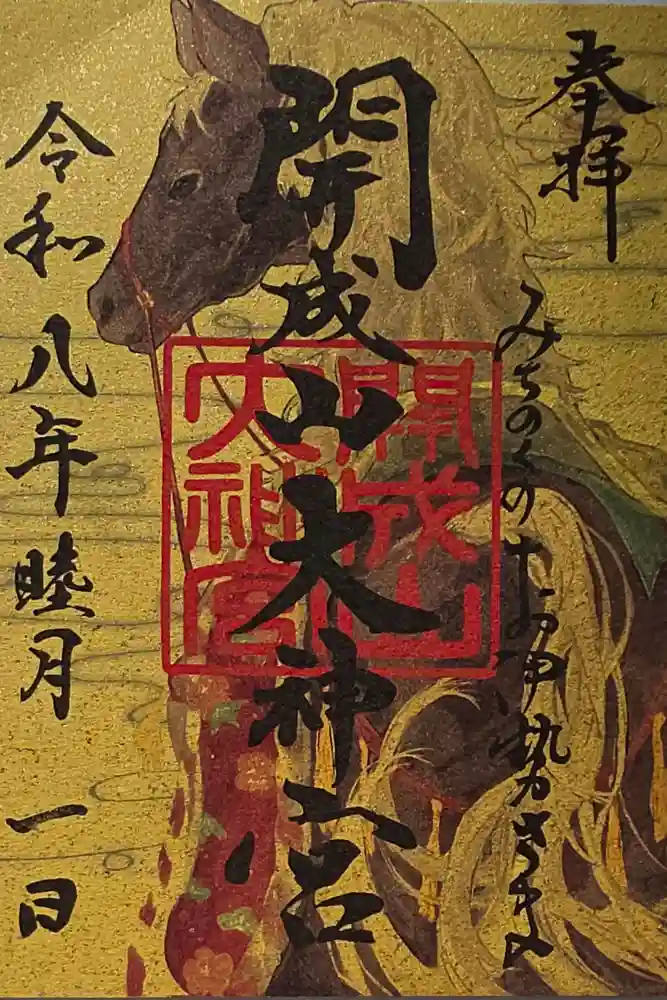 奉拝
みちのくのお伊勢さま
開成山大神宮
開成山
大神宮
令和八年睦月一日